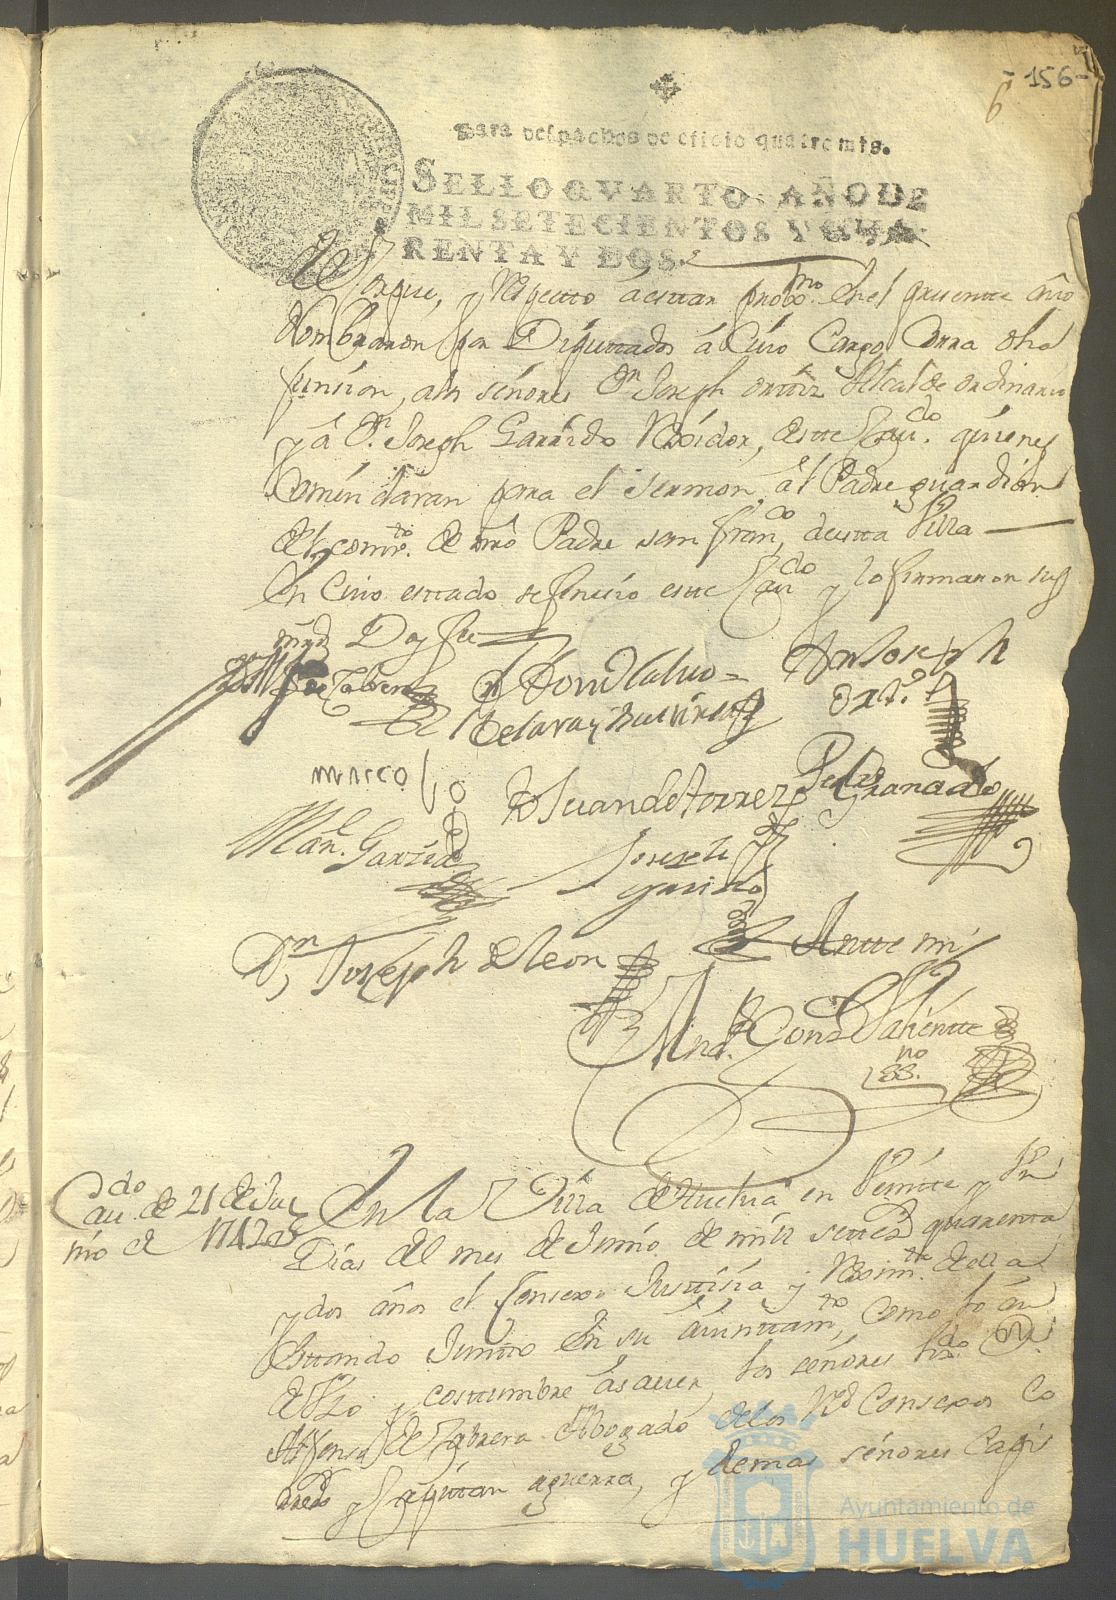 -156-
6
Para despachos de oficio quatro mrs.
SELLO QVARTO, AÑO DE
MIL SETECIENTOS Y QUA
RENTA Y DOS.
de Corpus, y Respecto á estar proxmo. en el presente año
Nombraron por Diputtados á Cuio Cargo Corra dha
funsion, a los señores Dn. Joseph orttiz Alcalde ordinario
y á Dn. Joseph Garrido Rexidor, deste Cavdo. quienes
Comúndaran para el sermon, á el Padre guardian
del comtto. de nro Padre san Franco, de esta Villa
En Cuio esttado se feneció este Cavdo y lo firmaron sus
mrds Doy fee
de Cabrera
Dn Joseph
Orts.
marcos
Dn Juan de torres
Pedro Granado
Manl. Garzia
Joseph
garrido
Dn Joseph de leon
Antte mi
Andr. Gonz Valiente
ssno.
Cavdo. de 21 de Ju
nio de 1742
En la Villa de Huelva en Veintte y Un
Días del mes de Junio de mill settezs quarenta
y dos años el Consexo Justtisia y Reximto. de ella
Esttando Juntto En su Aiunttamto, Como lo án
de Uzo y costtumbre ásauer, los señores Lizdo. Dn.
Alfonso de Cabrera Abogado de los Rs Consexos Co
rredor y Capitan aguerra, y demas señores Capi
Ayuntamiento de
HUELVA